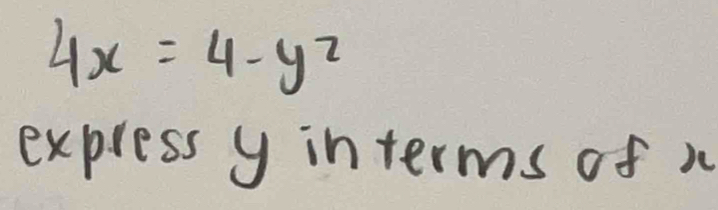 4x = 4 - y²
express y in terms of x